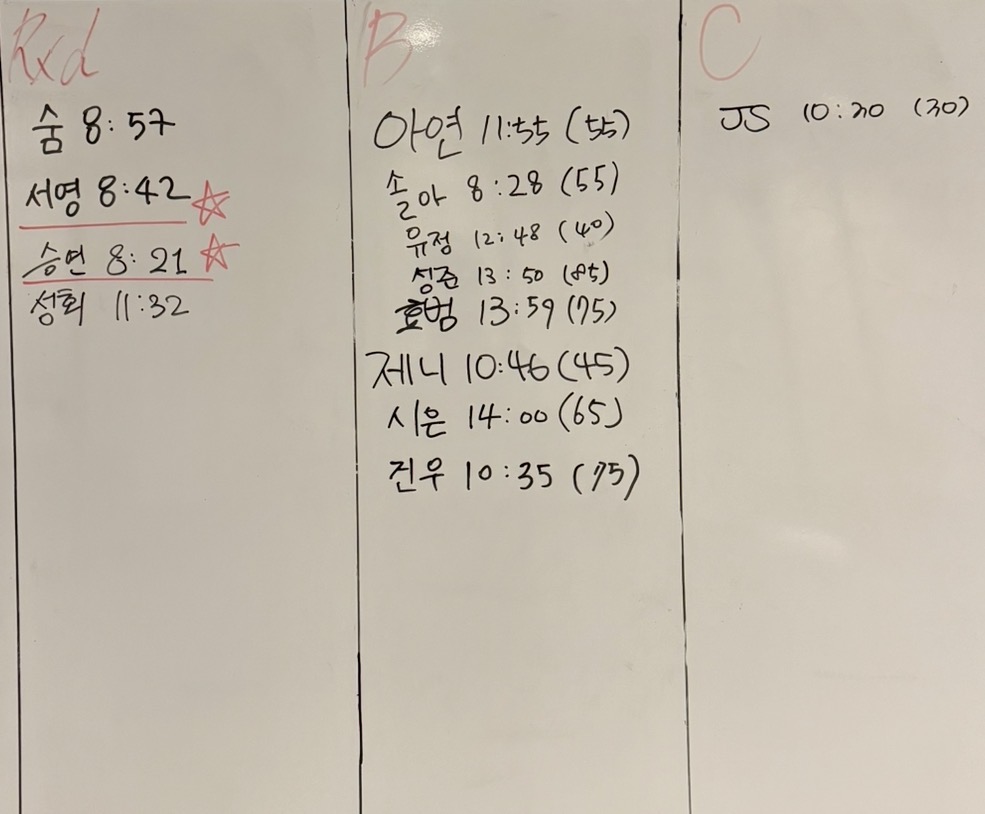 Rxd
숨 8:57
서영 8:42
승연 8:21
성회 11:32
B
아연 11:55 (55)
솔아 8:28 (55)
유정 12:48 (40)
성준 13:50 (85)
효범 13:59 (75)
제니 10:46 (45)
시은 14:00 (65)
진우 10:35 (75)
C
JS 10:30 (30)